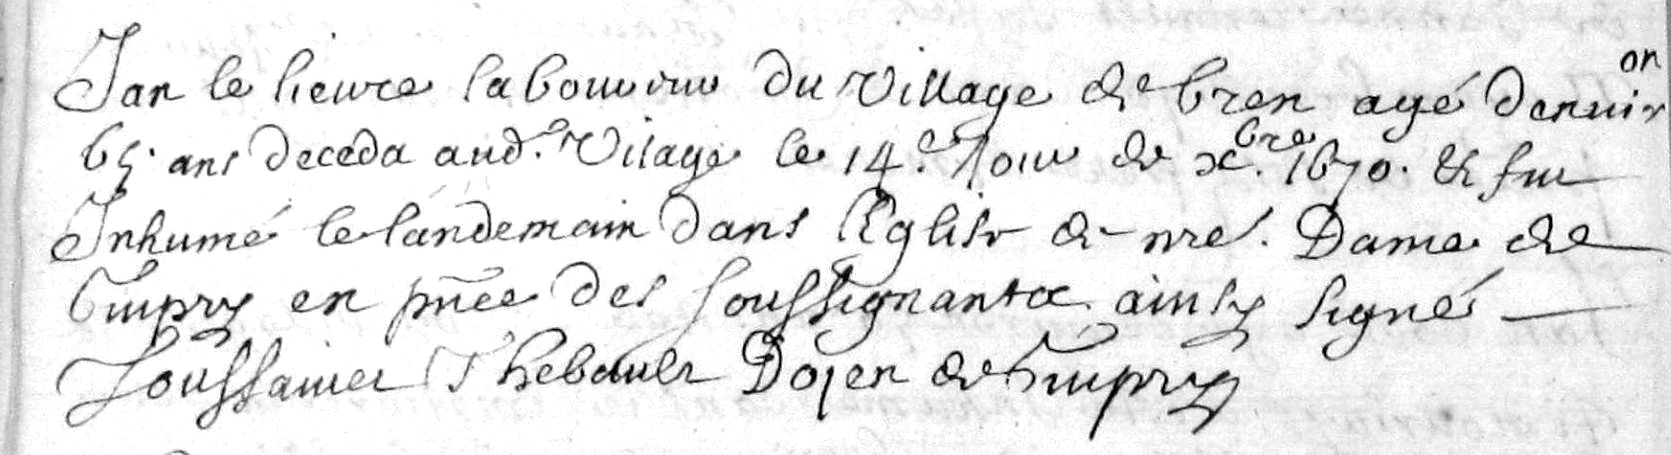 Jan le lieure laboureur du Village de bren agé denuiron
65. ans deceda aud.e Vilage le 14.e Jour de xbre. 1670. & fut
Inhumé le landemain dans l'Eglise de nre. Dame de
en pnce des soussignantz ainsy signé
Toussainct Thebault Doyen de